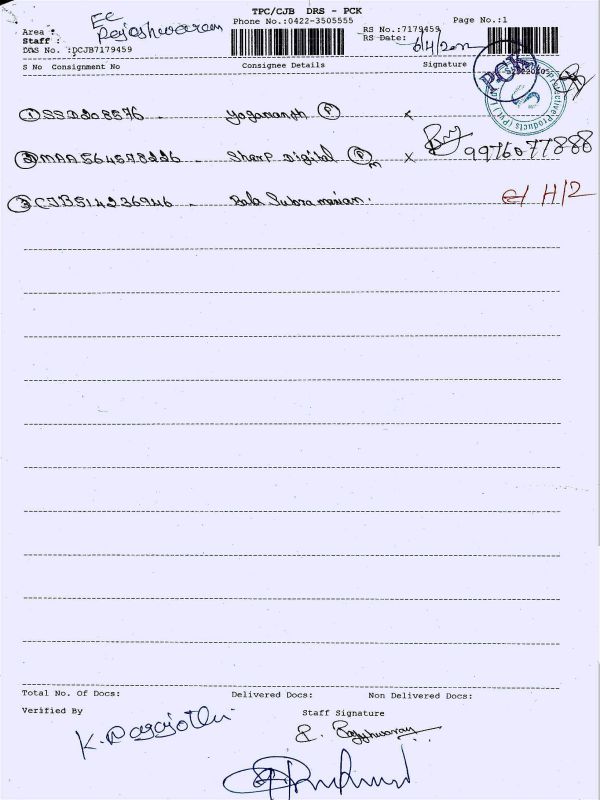 TPC/CJB DRS - PCK
Phone No.:0422-3505555
Page No.:1
Area :
EC
Staff :
Rajeshwaram
DRS No. :DCJB7179459
RS No.:7179459
RS Date: 6/4/2022
S No Consignment No Consignee Details Signature
PCK
① SSD208576 - Yogananth Ⓟ x
② MAA564578226 - Sharp Digital Ⓟ x 9976077888
③ CJB514236946 - Bala Subramanian.
H/2
Total No. Of Docs: Delivered Docs: Non Delivered Docs:
Verified By Staff Signature